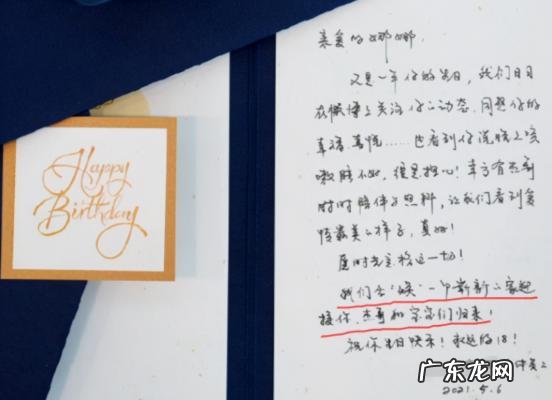 Happy
Birthday
亲爱的娜娜,
又是一年你的生日,我们日日
在微博上关注你的动态,同感你的
幸福喜悦……也看到你说晚上咳
嗽睡不好,很是担心!幸亏有杰哥
时时陪伴与照料,让我们看到爱
情最美的样子,真好!
愿时光定格这一切!
我们会"焕"一个崭新的家迎
接你、杰哥和家家们归来!
祝你生日快乐!永远的18!
2021.5.6
广东龙网